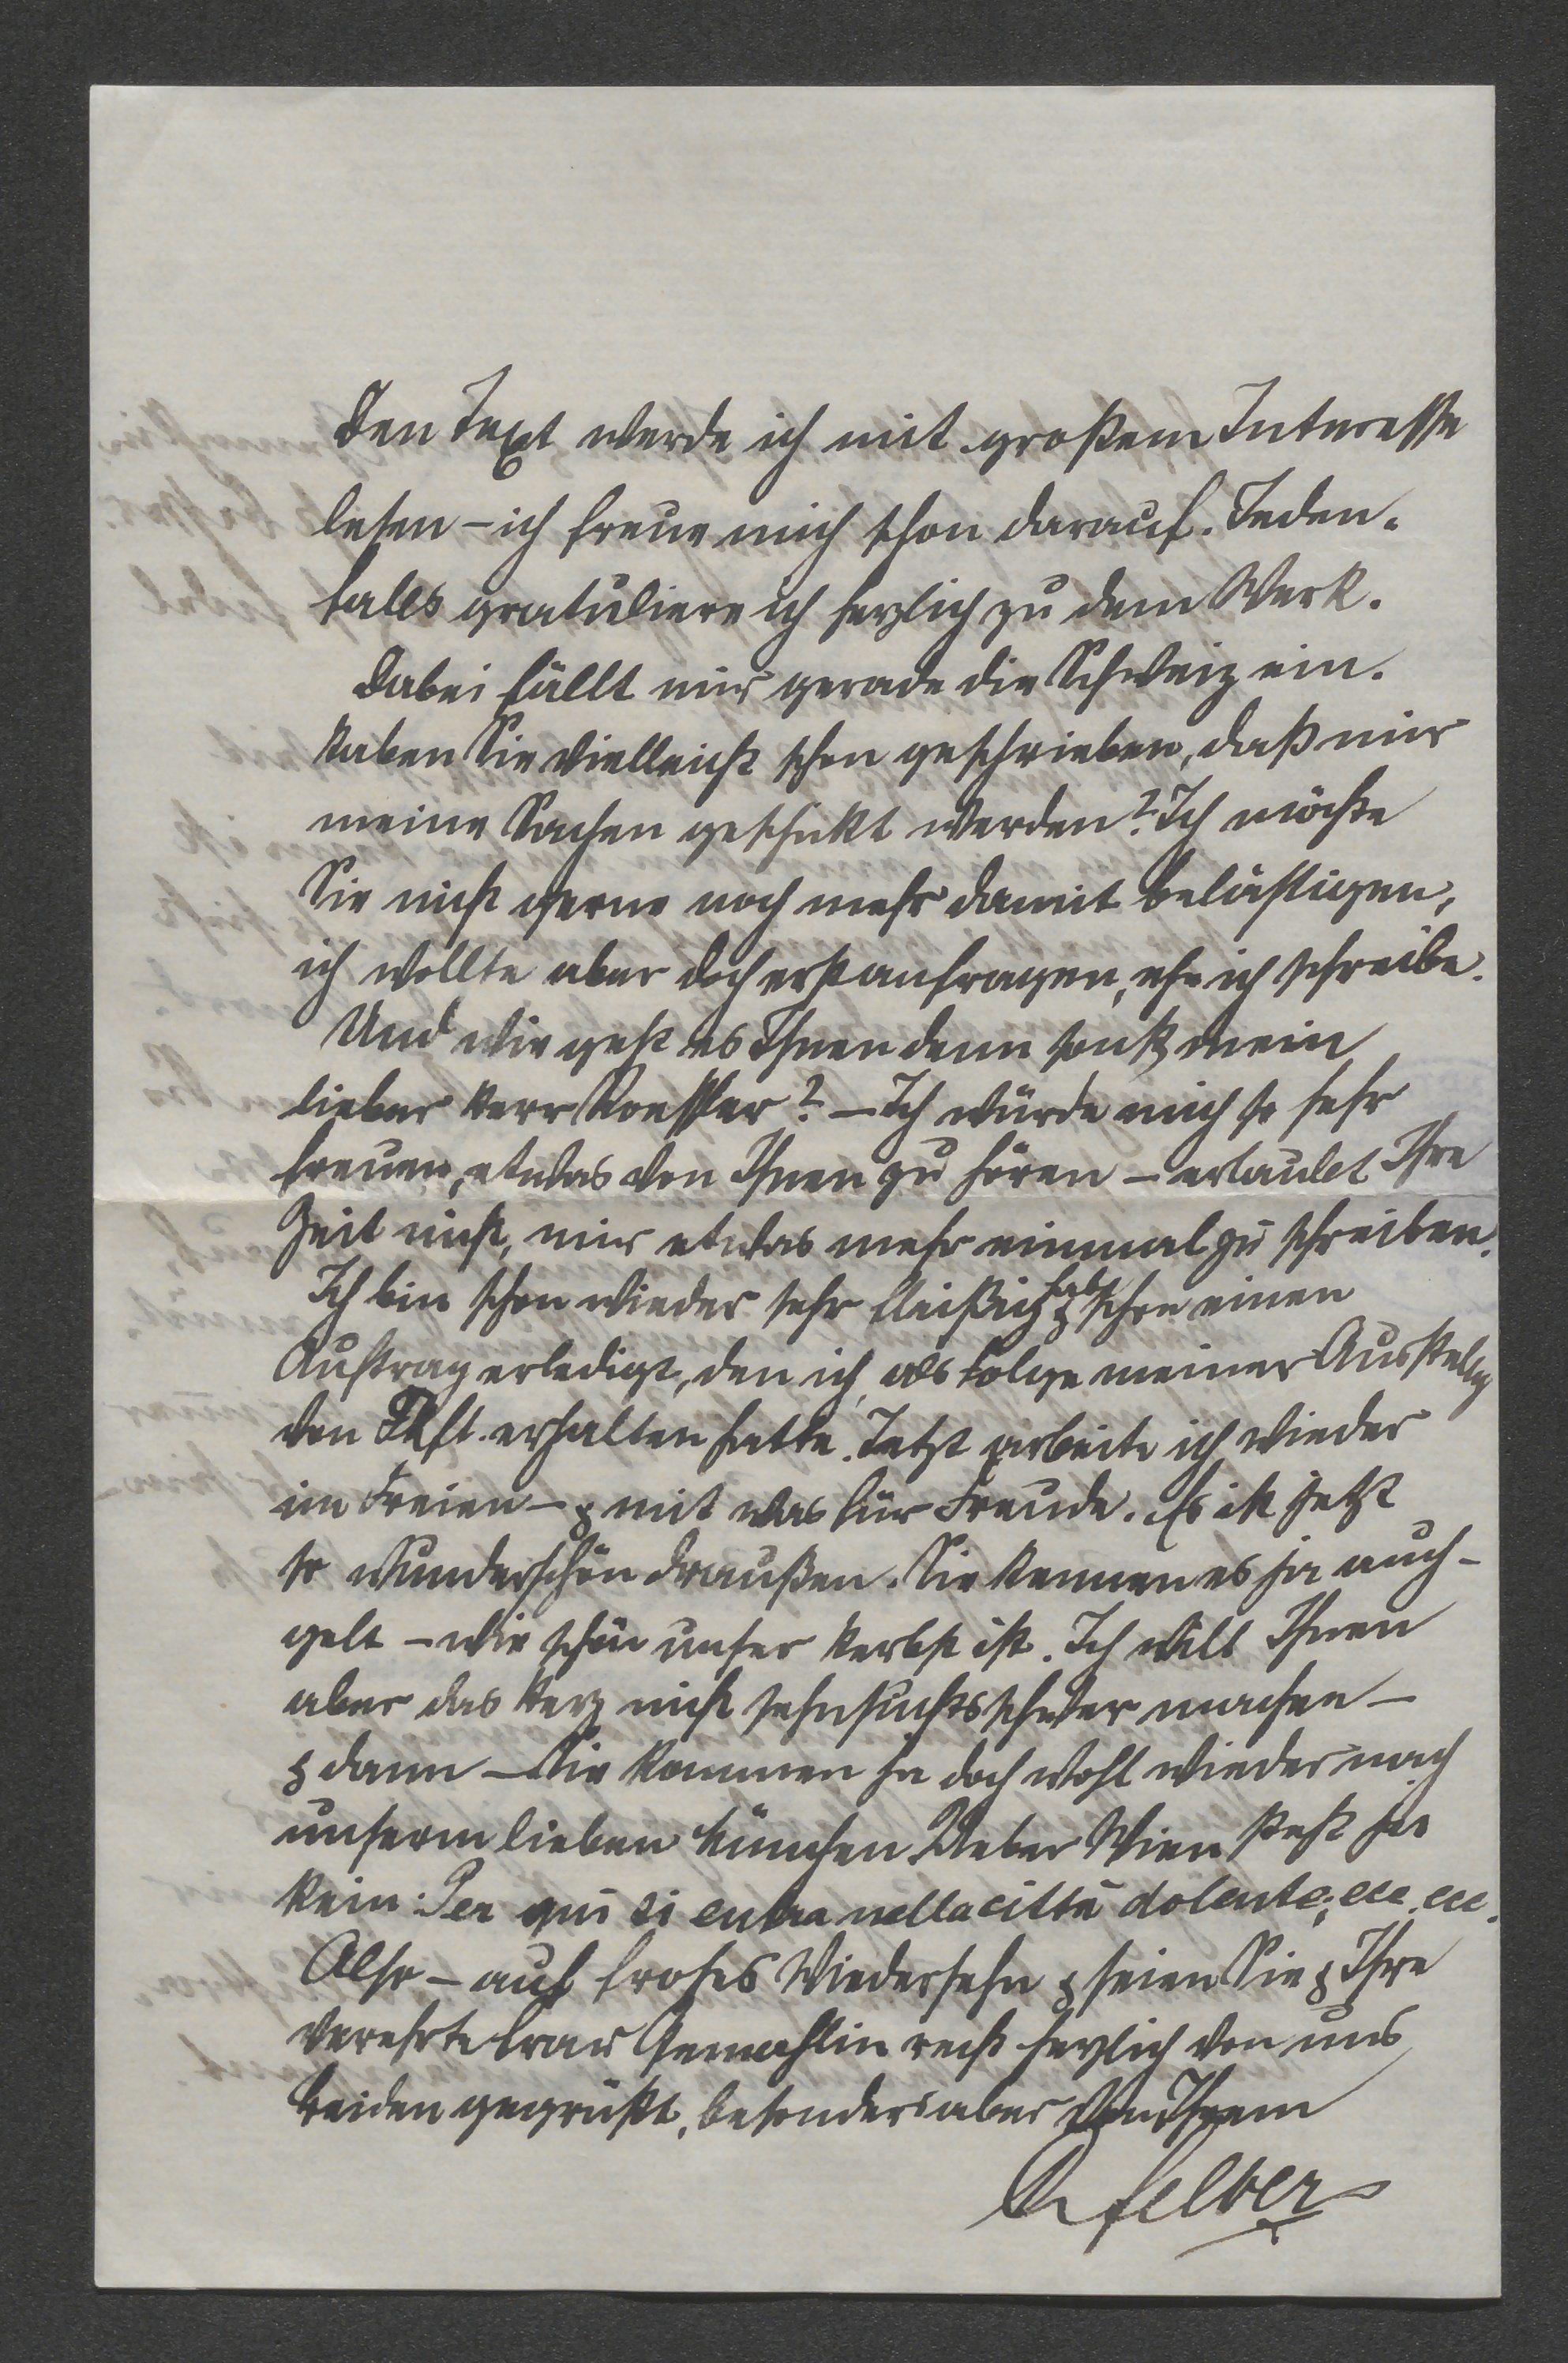 Den Text werde ich mit großem Interesse
lesen – ich freue mich schon darauf. Jeden-
falls gratuliere ich herzlich zu dem Werk.
Dabei fällt mir gerade die Schweiz ein.
Haben Sie vielleicht schon geschrieben, daß mir
meine Sachen geschickt werden? Ich möchte
Sie nicht gerne noch mehr damit belästigen,
ich wollte aber doch erst anfragen, ehe ich schreibe.
Und wie geht es Ihnen denn sonst, mein
lieber Herr Roessler? – Ich würde mich so sehr
freuen, etwas von Ihnen zu hören – erlaubt Ihre
Zeit nicht, mir etwas mehr einmal zu schreiben.
Ich bin schon wieder sehr fleißig & habe schon einen
Auftrag erledigt, den ich, als Folge meiner Ausstellg
von erhalten hatte. Jetzt arbeite ich wieder
im Freien – & mit was für Freude. Es ist jetzt
so wunderschön draußen. Sie kennen es ja auch –
gelt – wie schön unser Herbst ist. Ich will Ihnen
aber das Herz nicht sehnsuchtsschwer machen –
& dann – Sie kommen ja doch wohl wieder nach
unserm lieben München. Ueber Wien steht ja
kein: Per qui si entra nella città dolente, ecc. ecc.
Also – auf frohes Wiedersehn & seien Sie & Ihre
verehrte Frau Gemahlin recht herzlich von uns
beiden gegrüßt, besonders aber von Ihrem
Felber